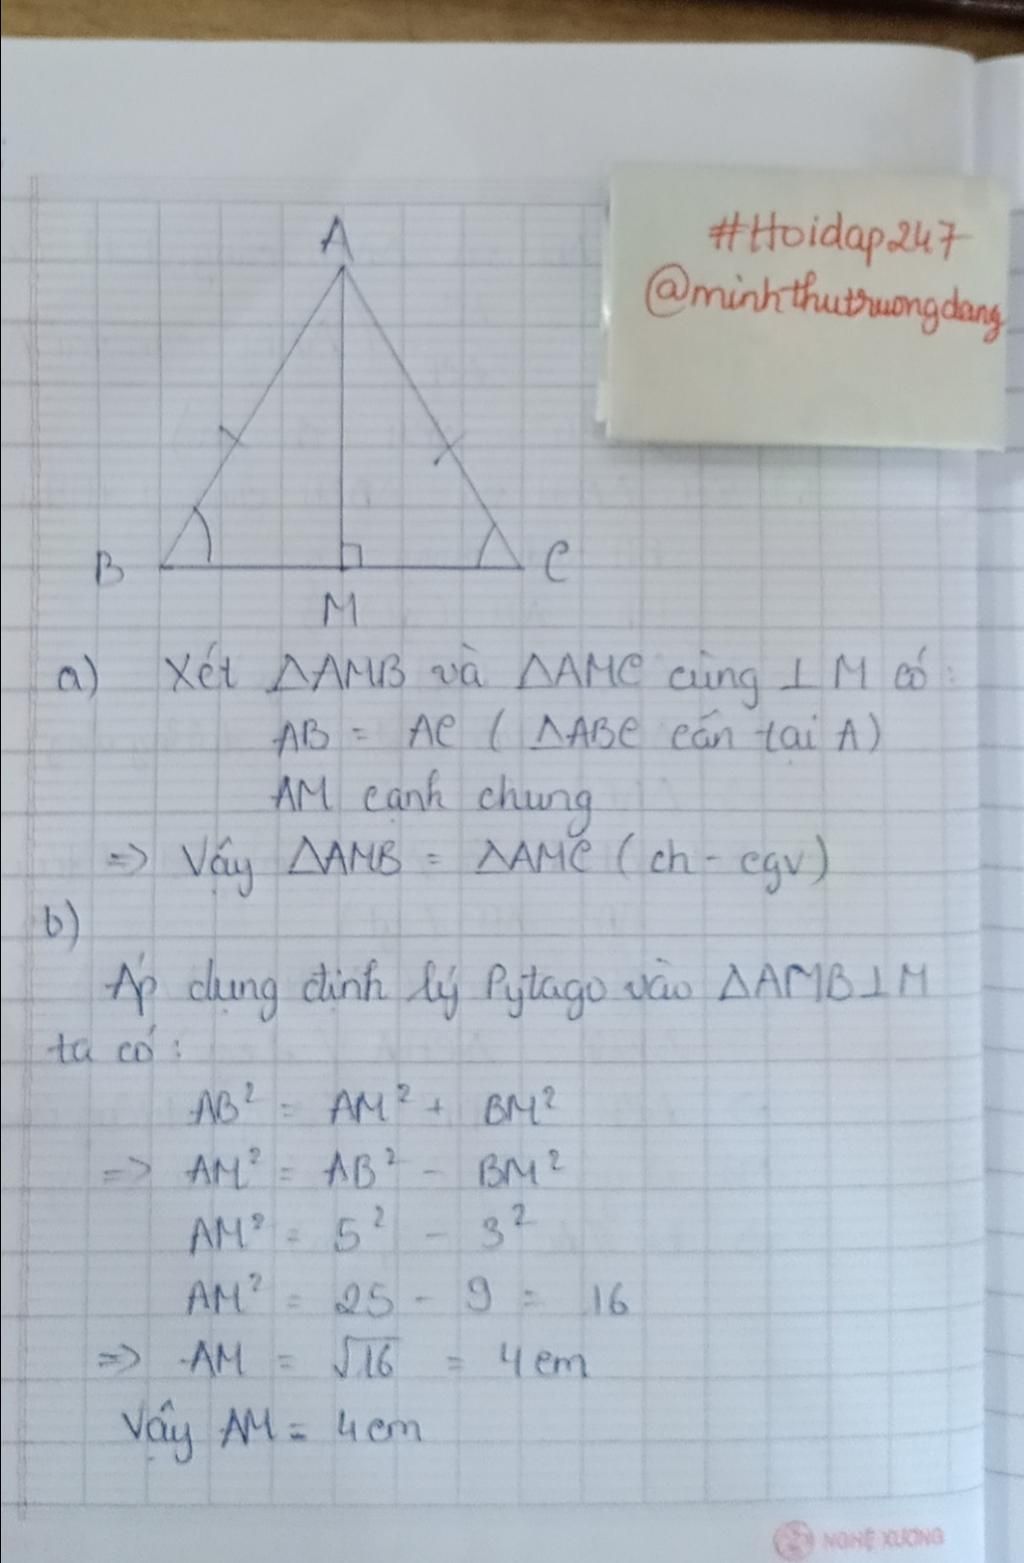 #Hoidap247
@minhthutruongdang
A
B
C
M
a) Xét ΔAMB và ΔAMC cùng ⊥ M có:
AB = AC (ΔABC cân tại A)
AM cạnh chung
=> Vậy ΔAMB = ΔAMC (ch - cgv)
b)
Áp dụng định lý Pytago vào ΔAMB⊥M
ta có:
AB² = AM² + BM²
=> AM² = AB² - BM²
AM² = 5² - 3²
AM² = 25 - 9 = 16
=> AM = √16 = 4cm
Vậy AM = 4cm
NGHỆ XƯƠNG